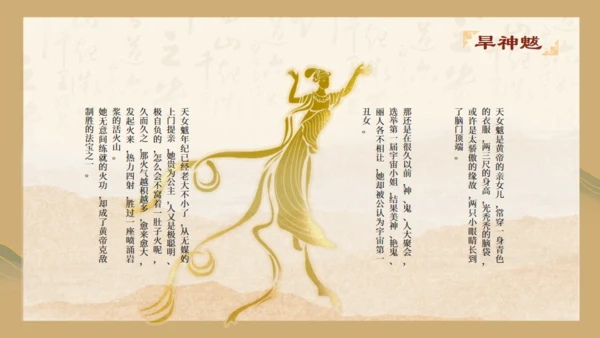 旱神魃
天女魃是黄帝的亲女儿，常穿一身青色
的衣服，两三尺的身高，光秃秃的脑袋，
或许是太骄傲的缘故，两只小眼睛长到
了脑门顶端。
那还是在很久以前，神、鬼、人大聚会，
选举第一届宇宙小姐，结果美神、艳鬼、
丽人各不相让，她却被公认为宇宙第一
丑女。
天女魃年纪已经老大不小了，从无媒妁
上门提亲，她贵为公主，人又是极聪明、
极自负的，怎么会不窝着一肚子火呢，
久而久之，那火气越积越多，愈来愈大，
发起火来，热力四射，胜过一座喷涌岩
浆的活火山。
她无意间练就的火功，却成了黄帝克敌
制胜的法宝之一。